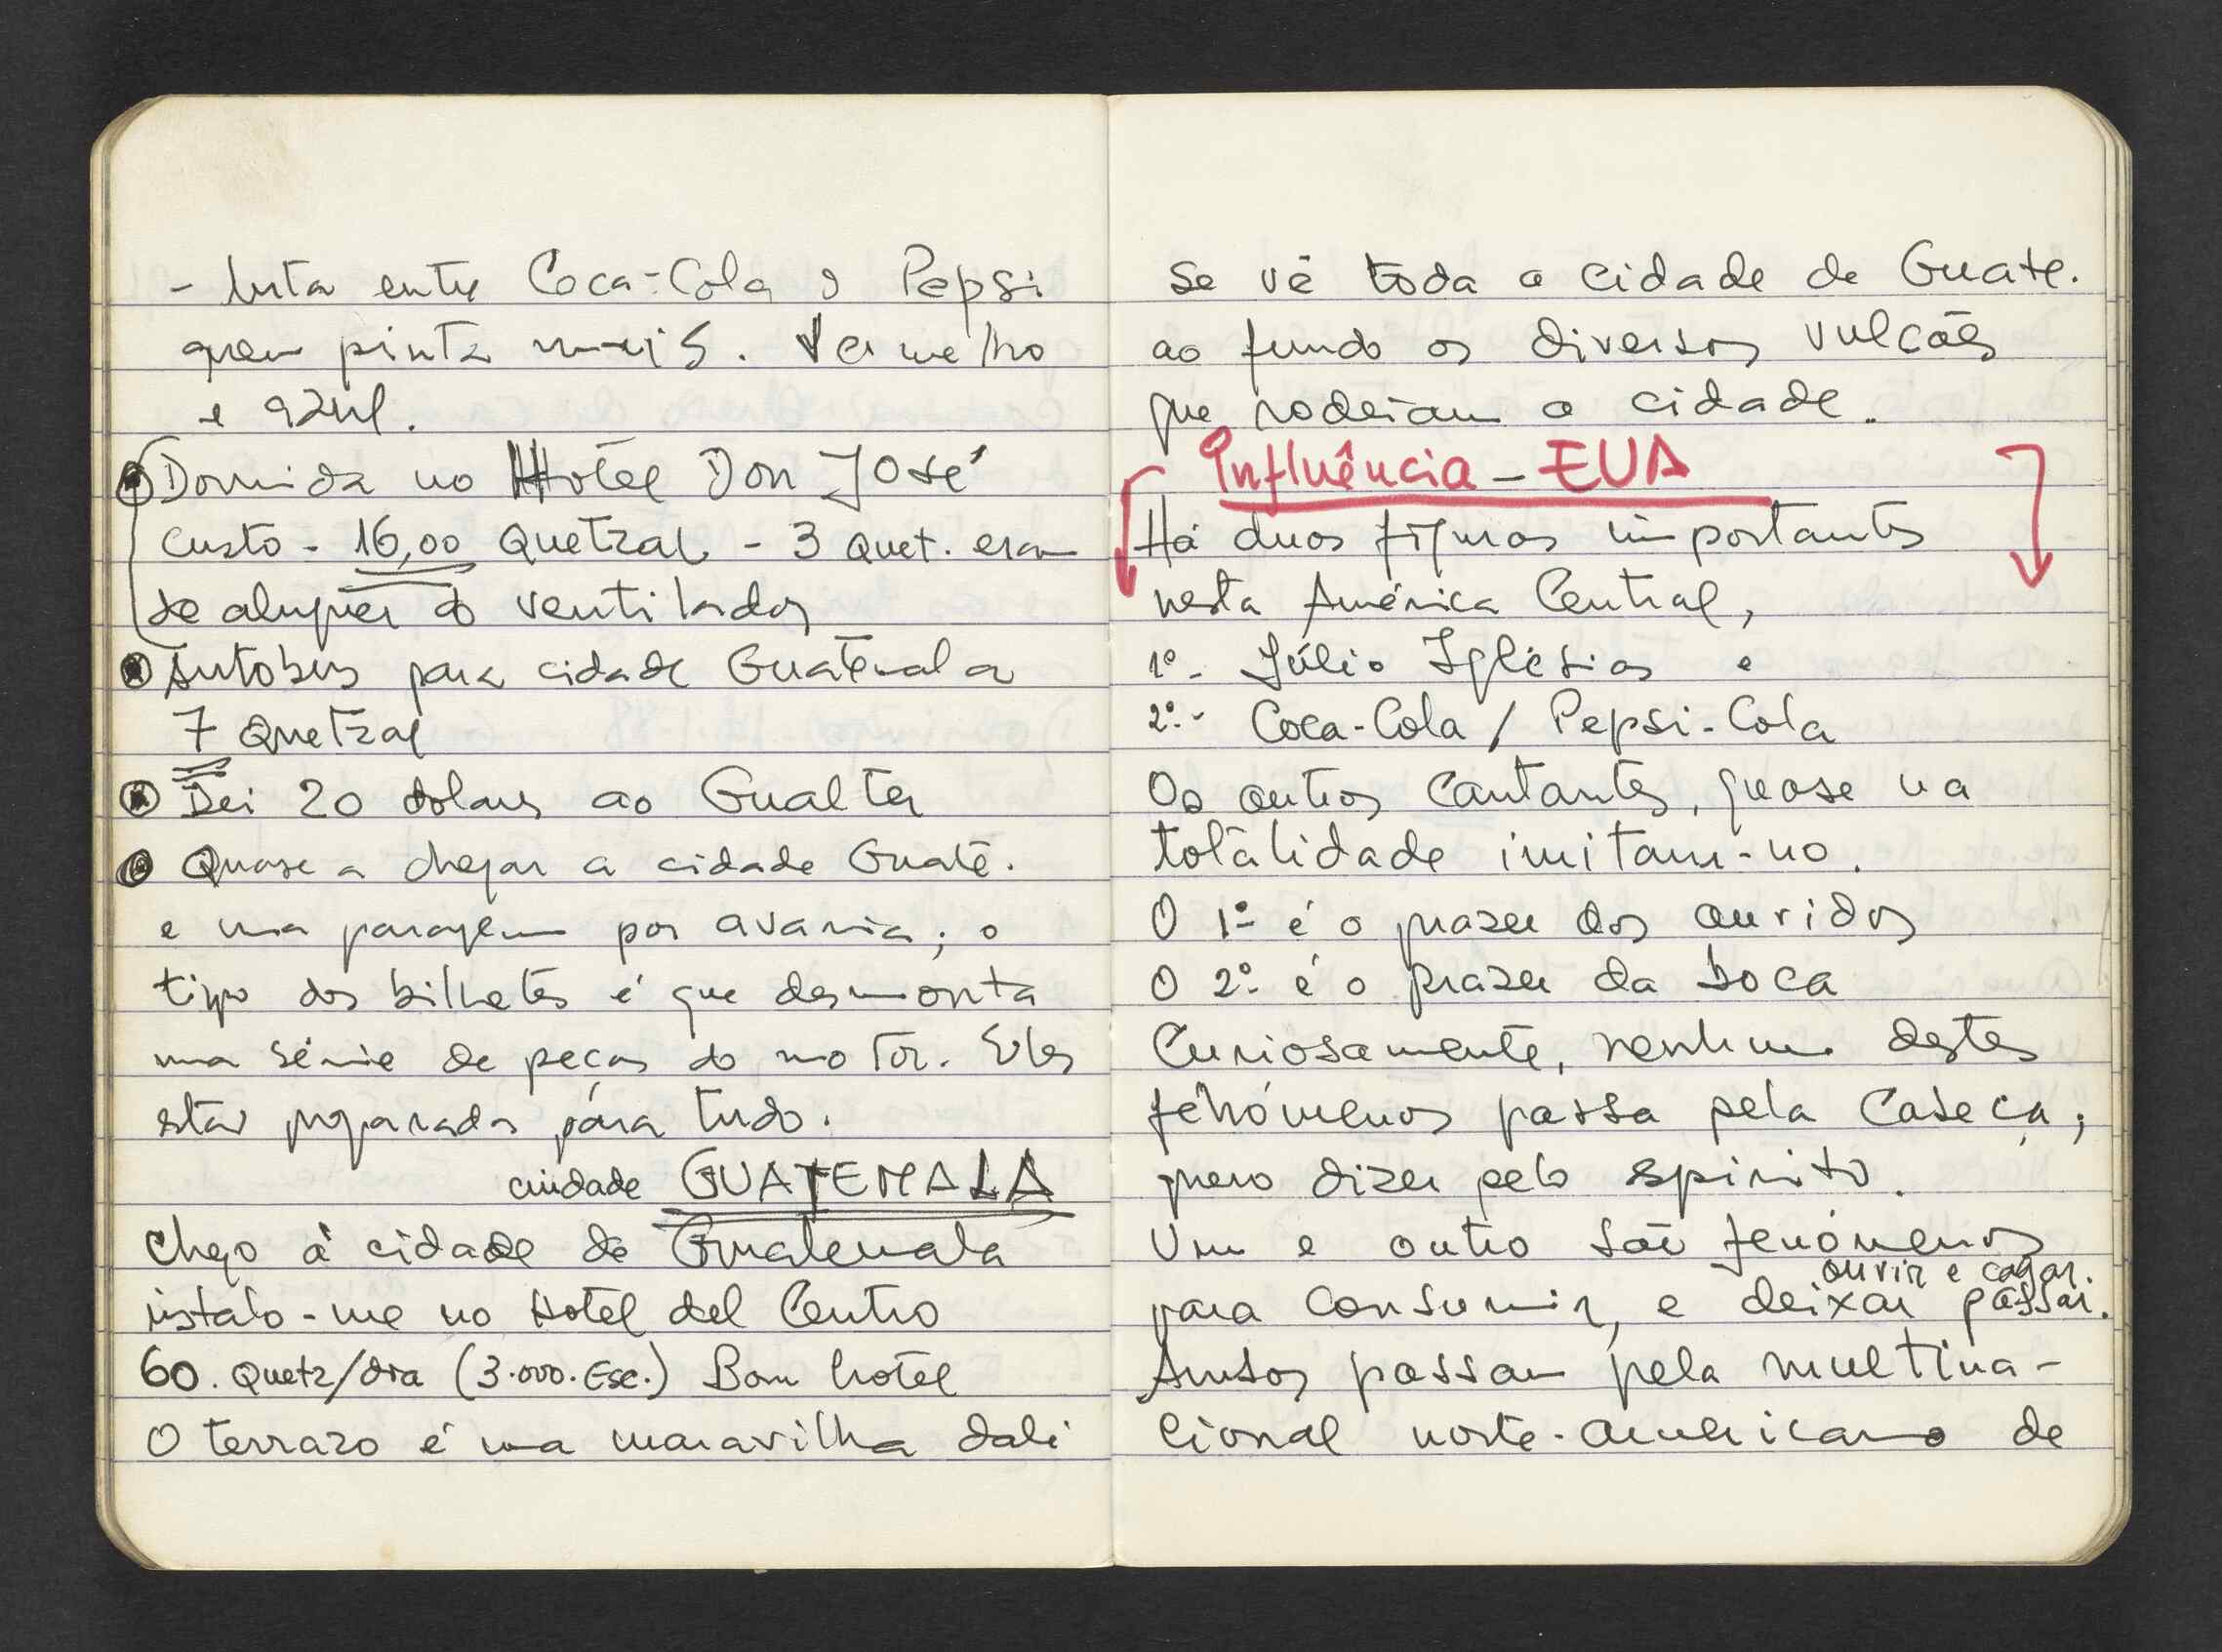 - luta entre Coca-Cola e Pepsi
quem pinta mais. Vermelho
e azul.
Dormida no Hotel Don José
custo - 16,00 Quetzal - 3 Quet. eram
de aluguer do ventilador
Autobus para cidade Guatemala
7 Quetzal
Dei 20 dolares ao Gualter
Quase a chegar a cidade Guate.
e uma paragem por avaria; o
tipo dos bilhetes é que desmonta
uma série de peças do motor. Eles
estão preparados para tudo.
ciudade GUATEMALA
Chego à cidade de Guatemala
instalo-me no Hotel del Centro
60. Quetz/dia (3.000.Esc.) Bom hotel
O terrazo é uma maravilha dali
se vê toda a cidade de Guate.
ao fundo os diversos vulcões
que rodeiam a cidade.
Influência - EUA
Há duas figuras importantes
nesta América Central,
1º- Júlio Iglésias e
2º.- Coca-Cola / Pepsi-Cola
Os outros cantantes, quase na
totalidade imitam-no.
O 1º é o prazer dos ouvidos
O 2º é o prazer da boca
Curiosamente, nenhum destes
fenómenos passa pela cabeça;
quero dizer pelo espirito.
Um e outro são fenómenos
ouvir e cagar.
para consumir, e deixar passar.
Ambos passam pela multina-
cional norte-americana de